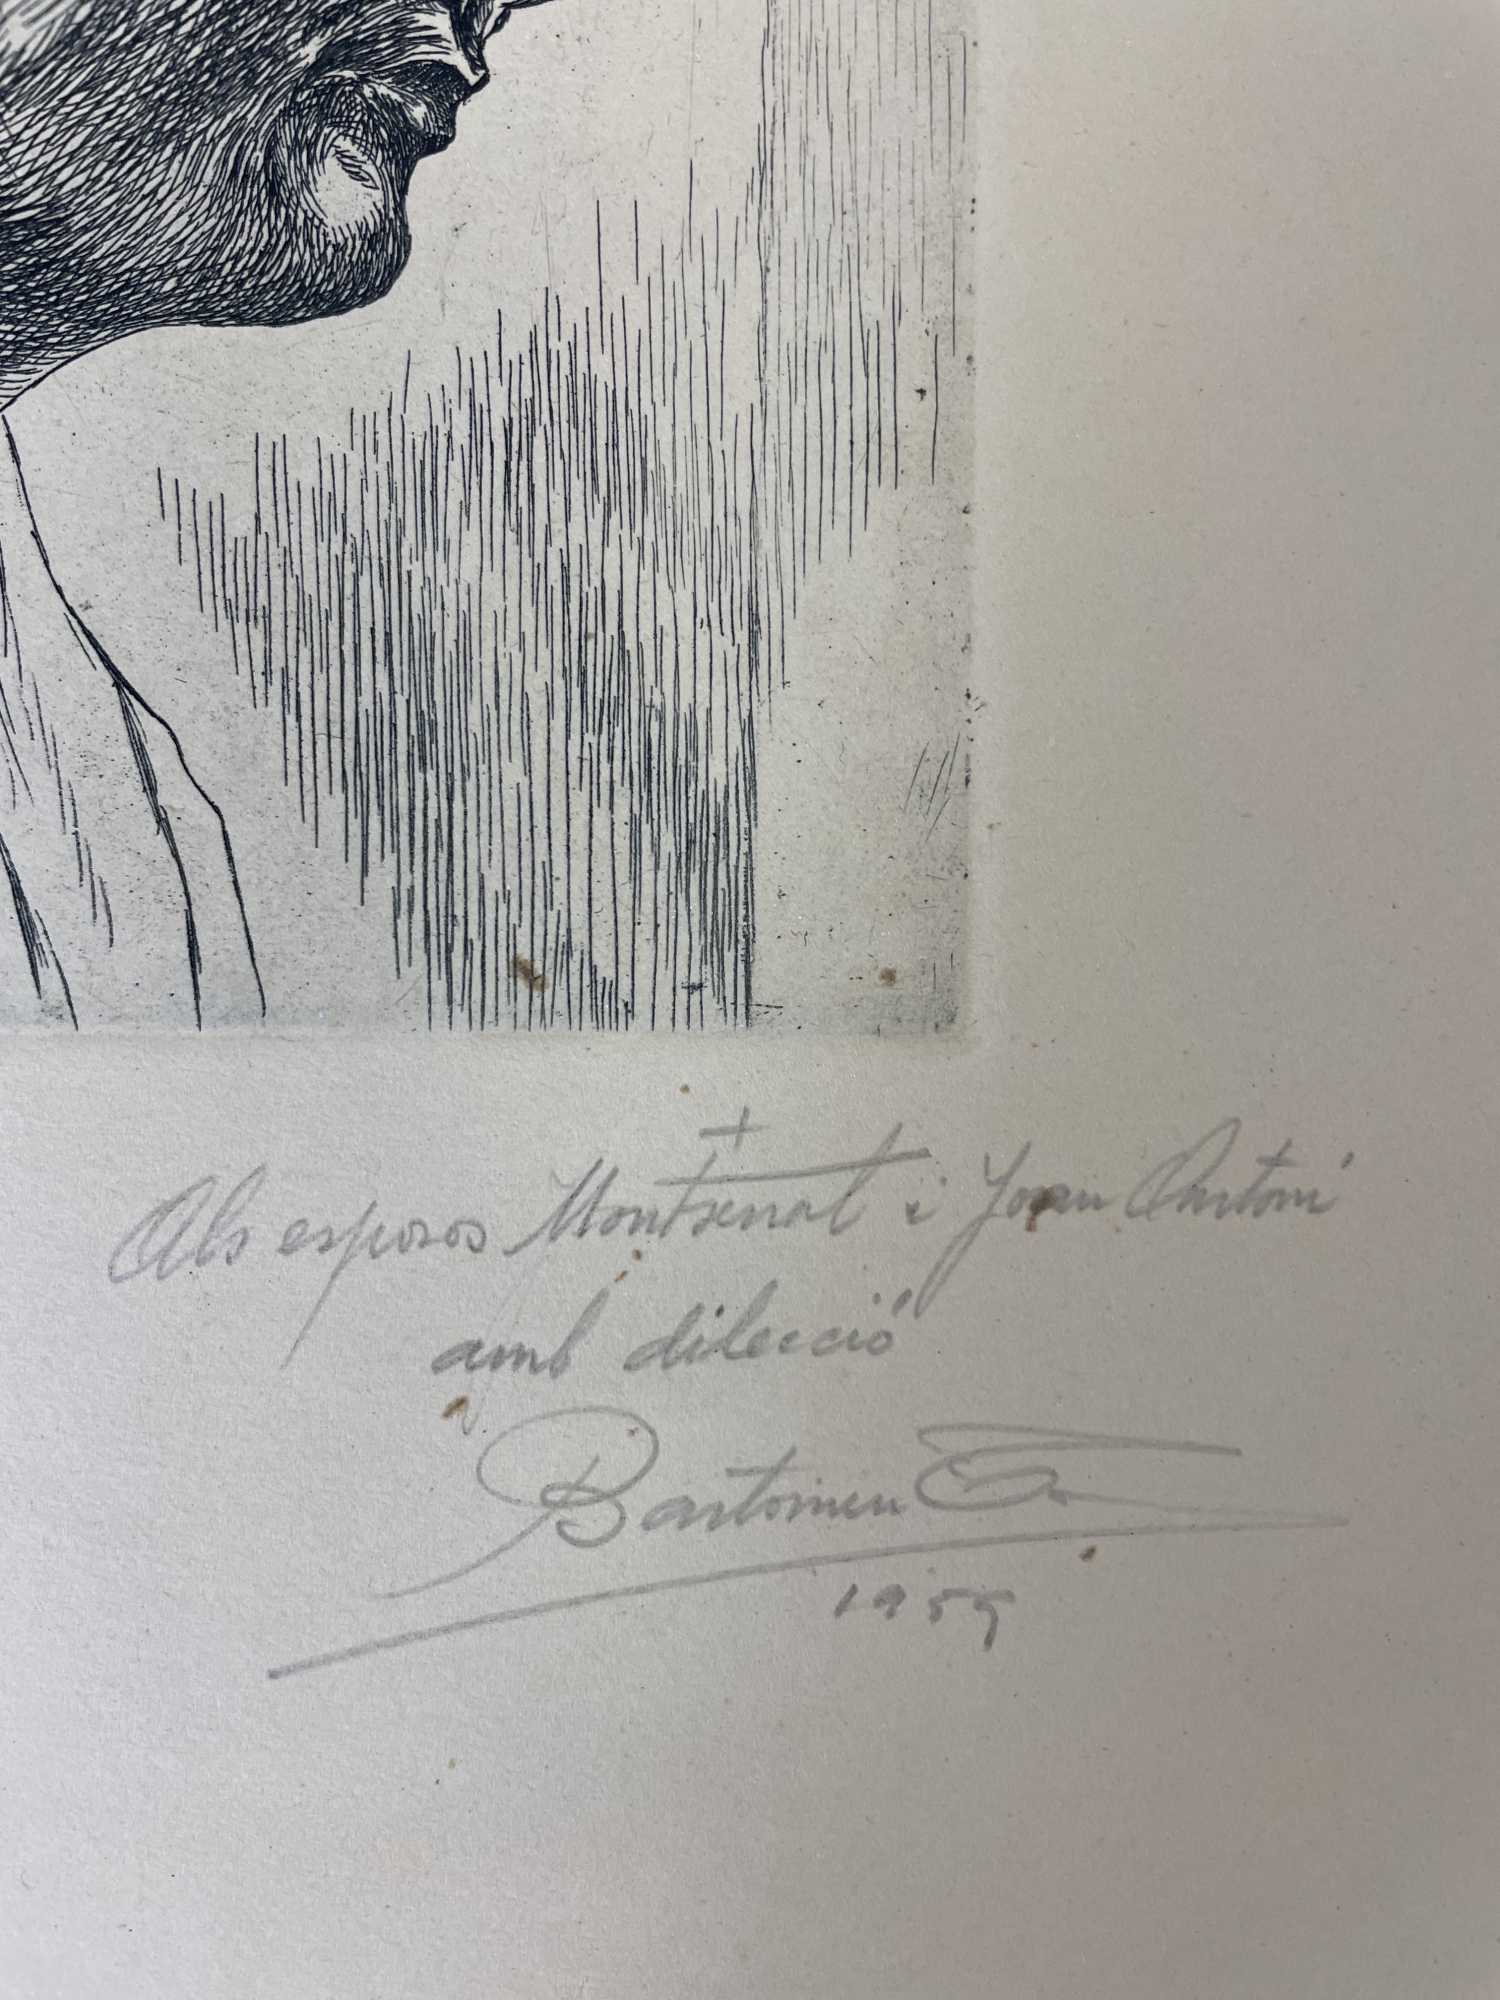 +
Als esposos Montserrat i Joan Antoni
amb dilecció
Bartomeu
1959